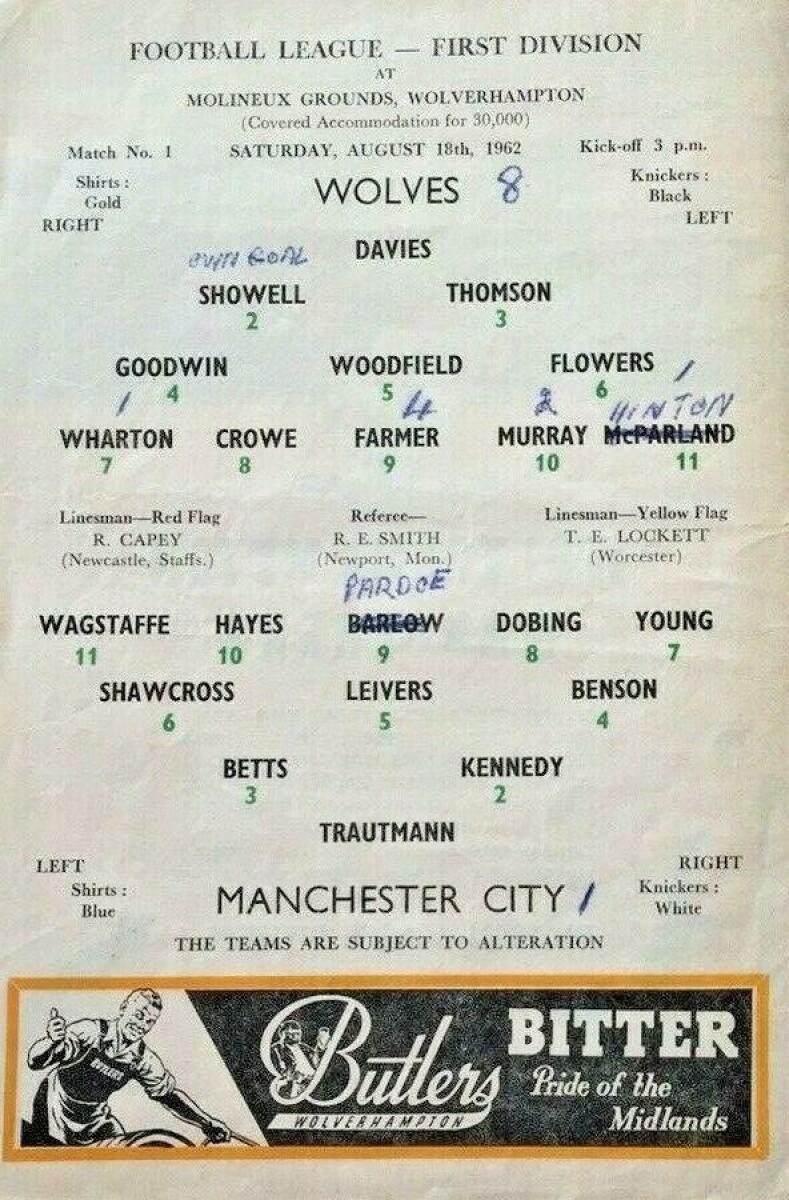 FOOTBALL LEAGUE — FIRST DIVISION
AT
MOLINEUX GROUNDS, WOLVERHAMPTON
(Covered Accommodation for 30,000)
Match No. 1 SATURDAY, AUGUST 18th, 1962 Kick-off 3 p.m.
Shirts : Gold WOLVES 8 Knickers : Black
RIGHT LEFT
DAVIES
OWN GOAL
SHOWELL THOMSON
2 3
GOODWIN WOODFIELD FLOWERS
4 5 6
1 4 2 HINTON 1
WHARTON CROWE FARMER MURRAY McPARLAND
7 8 9 10 11
Linesman—Red Flag Referee— Linesman—Yellow Flag
R. CAPEY R. E. SMITH T. E. LOCKETT
(Newcastle, Staffs.) (Newport, Mon.) (Worcester)
PARDOE
WAGSTAFFE HAYES BARLOW DOBING YOUNG
11 10 9 8 7
SHAWCROSS LEIVERS BENSON
6 5 4
BETTS KENNEDY
3 2
TRAUTMANN
LEFT RIGHT
Shirts : Blue MANCHESTER CITY 1 Knickers : White
THE TEAMS ARE SUBJECT TO ALTERATION
BUTLERS
Butlers BITTER
WOLVERHAMPTON
Pride of the
Midlands